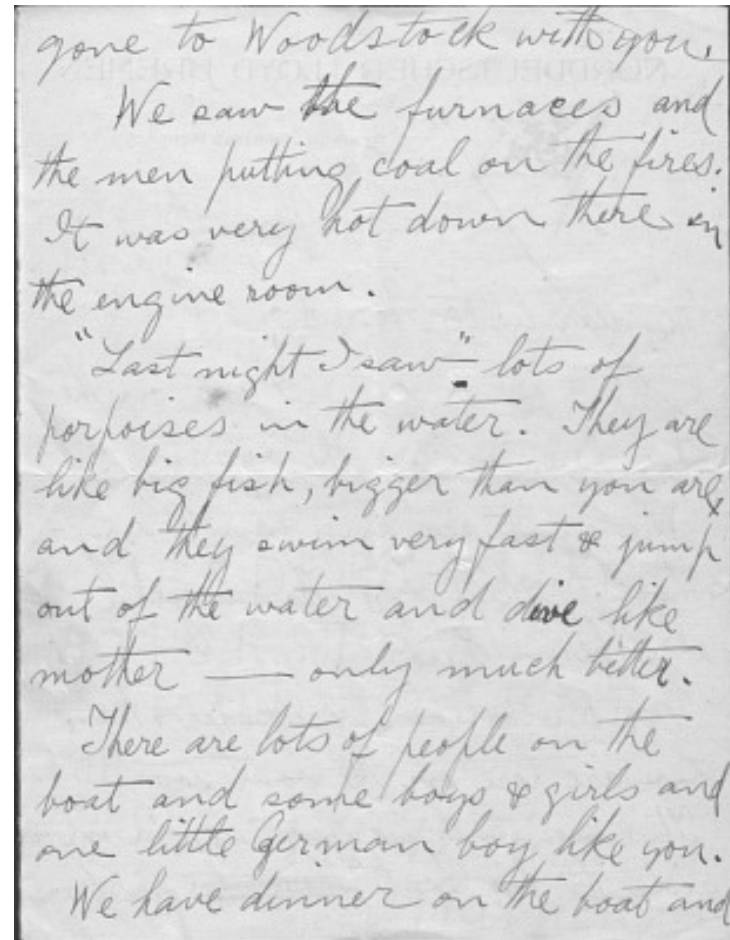 gone to Woodstock with you.
We saw the furnaces and
the men putting coal on the fires.
It was very hot down there in
the engine room.
"Last night I saw" lots of
porpoises in the water. They are
like big fish, bigger than you are,
and they swim very fast & jump
out of the water and dive like
mother — only much better.
There are lots of people on the
boat and some boys & girls and
one little German boy like you.
We have dinner on the boat and